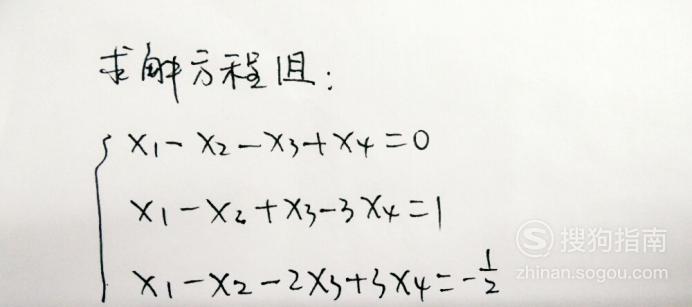 求解方程组:
x₁-x₂-x₃+x₄=0
x₁-x₂+x₃-3x₄=1
x₁-x₂-2x₃+3x₄=-1/2
搜狗指南
zhinan.sogou.com